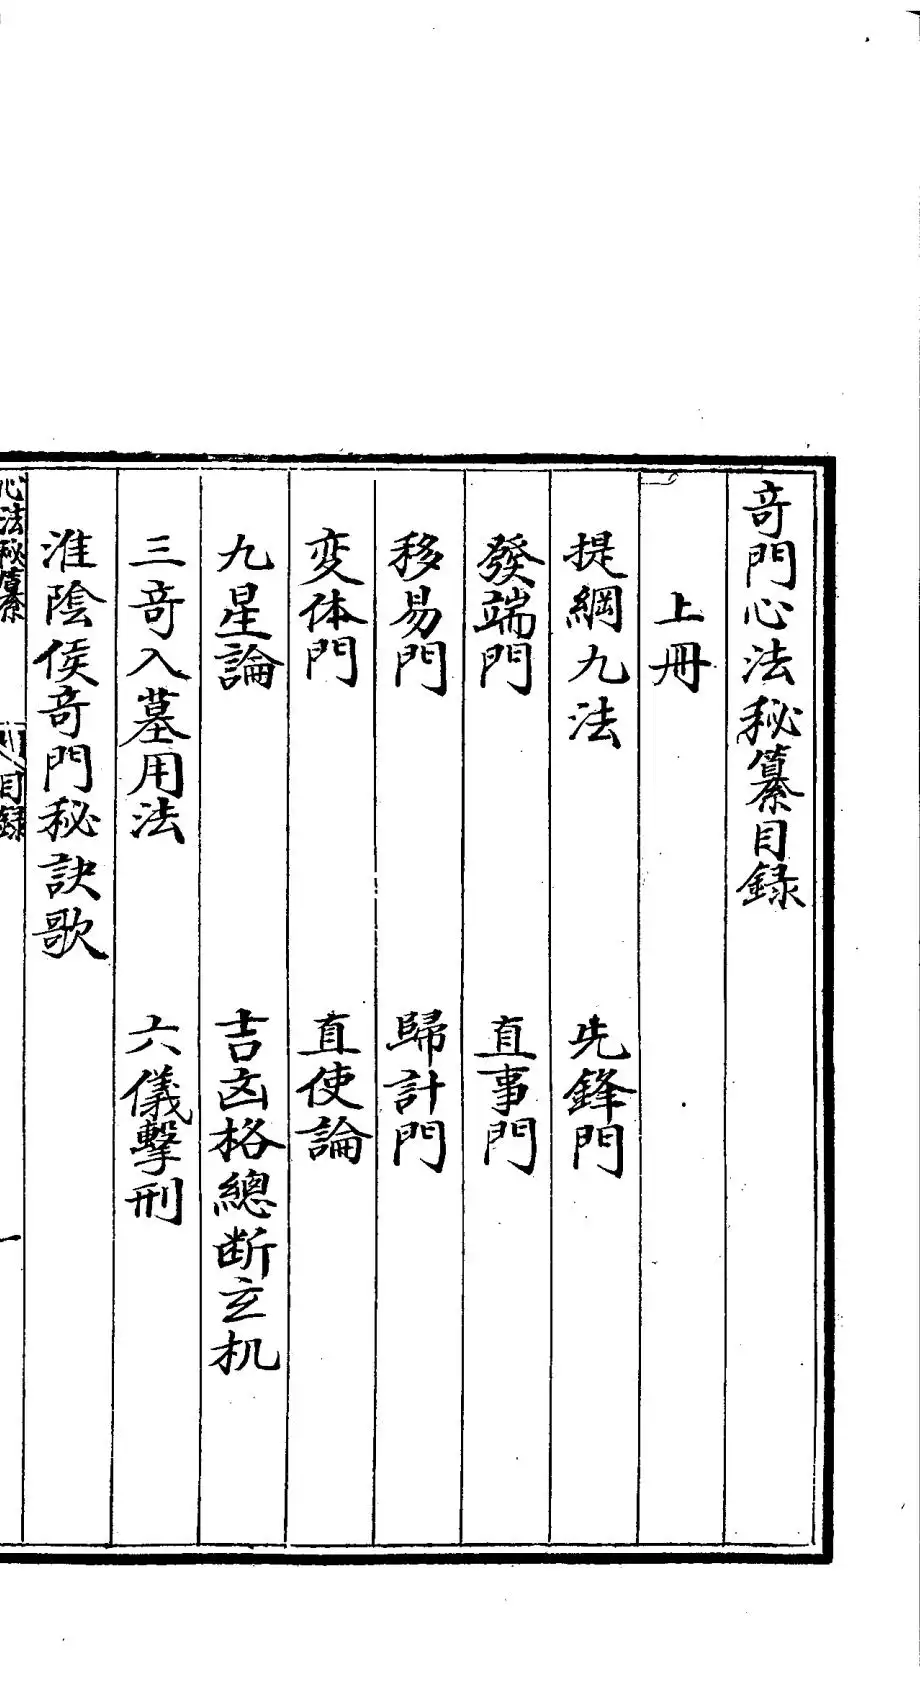 奇門心法秘纂目録
上册
提綱九法 先鋒門
發端門 直事門
移易門 歸計門
变体門 直使論
九星論 吉凶格總断玄机
三奇入墓用法 六儀擊刑
淮陰侯奇門秘訣歌
心法秘纂 目録 一